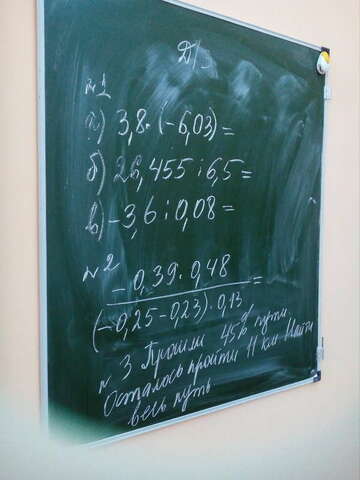 Д/З
№1
а) 3,8 · (-6,03) =
б) 26,455 : 6,5 =
в) -3,6 : 0,08 =
№2
-0,39 · 0,48
(-0,25-0,23) · 0,13 =
№3 Прошли 45% пути.
Осталось пройти 11 км Найти
весь путь